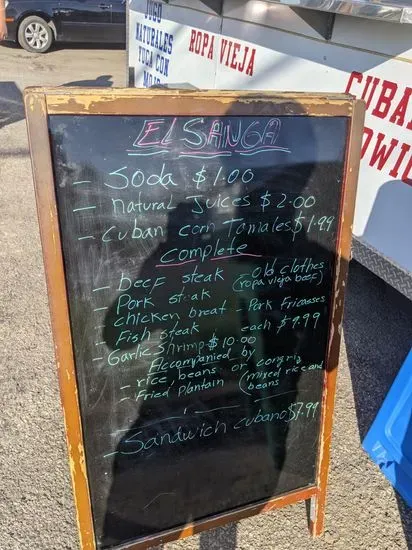 JUGO
NATURALES
YUCA CON
MOJO
ROPA VIEJA
CUBAN
EL SANGA
- Soda $1.00
- natural Juices $2.00
- Cuban corn Tomales $1.99
complete
- beef steak - old clothes
(ropa vieja beef)
- Pork steak
- chicken breat - Pork Fricasses
- Fish steak each $9.99
- Garlic Shrimp $10.00
Accompanied by
- rice beans or congris
- Fried plantain (mixed rice and
beans
- Sandwich cubano $7.99